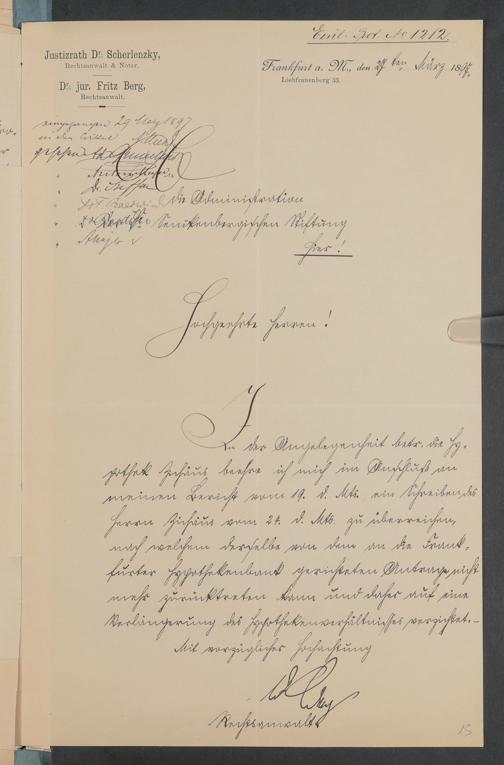 Exh. Prot. No 1212.
Justizrath Dr. Scherlenzky,
Rechtsanwalt & Notar.
Dr. jur. Fritz Berg,
Rechtsanwalt.
Frankfurt a. M., den 27ten März 1897.
Liebfrauenberg 33.
eingegangen 29 März 1897
gesehen
die Administration
Senckenbergischen Stiftung
Hier!
Hochgeehrte Herren!
In der Angelegenheit betr. die Hy-
pothek beehre ich mich im Anschluß an
meinen Bericht vom 19. d. Mts. ein Schreiben des
Herrn vom 24. d. Mts. zu überreichen,
nach welchem derselbe von dem an die Frank-
furter Hypothekenbank gerichteten Antrage nicht
mehr zurücktreten kann und daher auf eine
Verlängerung des Hypothekenverhältnisses verzichtet.-
Mit vorzüglicher Hochachtung
Rechtsanwalt